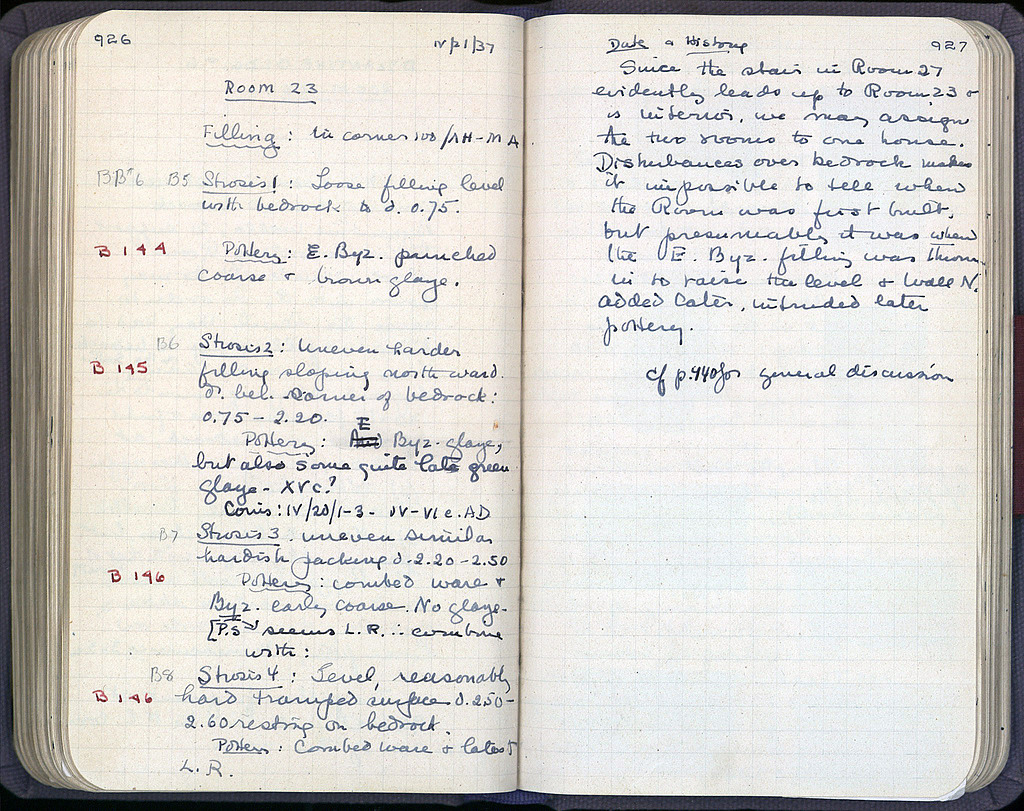 926
IV/21/37
ROOM 23
Filling: in corner 100/AH-MA
BB56 B5 Strosis 1: Loose filling level
with bedrock to d. 0.75.
B 144 Pottery: E. Byz. punched
coarse & brown glaze.
B6 Strosis 2: Uneven harder
B 145 filling sloping northward.
d. bel. corner of bedrock:
0.75 - 2.20.
Pottery: E Byz. glaze,
but also some quite late green
glaze - XV c.?
Coins: IV/20/1-3 - IV-VI c. AD
B7 Strosis 3. uneven similar
hardish packing d. 2.20-2.50
B 146 Pottery: combed ware &
Byz. early coarse. No glaze.
[P.S seems L.R. ∴ combine
with:
B8 Strosis 4: Level, reasonably
B 146 hard tramped surface d. 2.50-
2.60 resting on bedrock.
Pottery: Combed ware & latest
L.R.
927
Date & History
Since the stair in Room 27
evidently leads up to Room 23 &
is interior, we may assign
the two rooms to one house.
Disturbances over bedrock makes
it impossible to tell when
the Room was first built,
but presumably it was when
the E. Byz. filling was thrown
in to raise the level & Wall N.
added later, intruded later
pottery.
cf p. 940 for general discussion